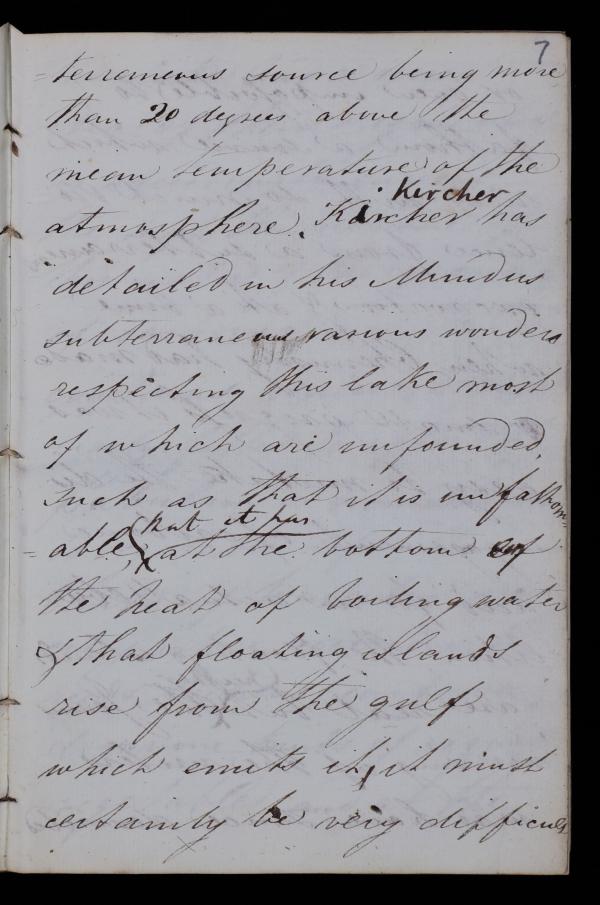 7
=terraneous source being more
than 20 degrees above the
mean temperature of the
Kircher
atmosphere. Kircher has
detailed in his Mundus
subterraneous various wonders
respecting this lake most
of which are unfounded,
such as that it is unfathom=
that it has
=able, at the bottom of
the heat of boiling water
& that floating islands
rise from the gulf
which emits it, it must
certainly be very difficult